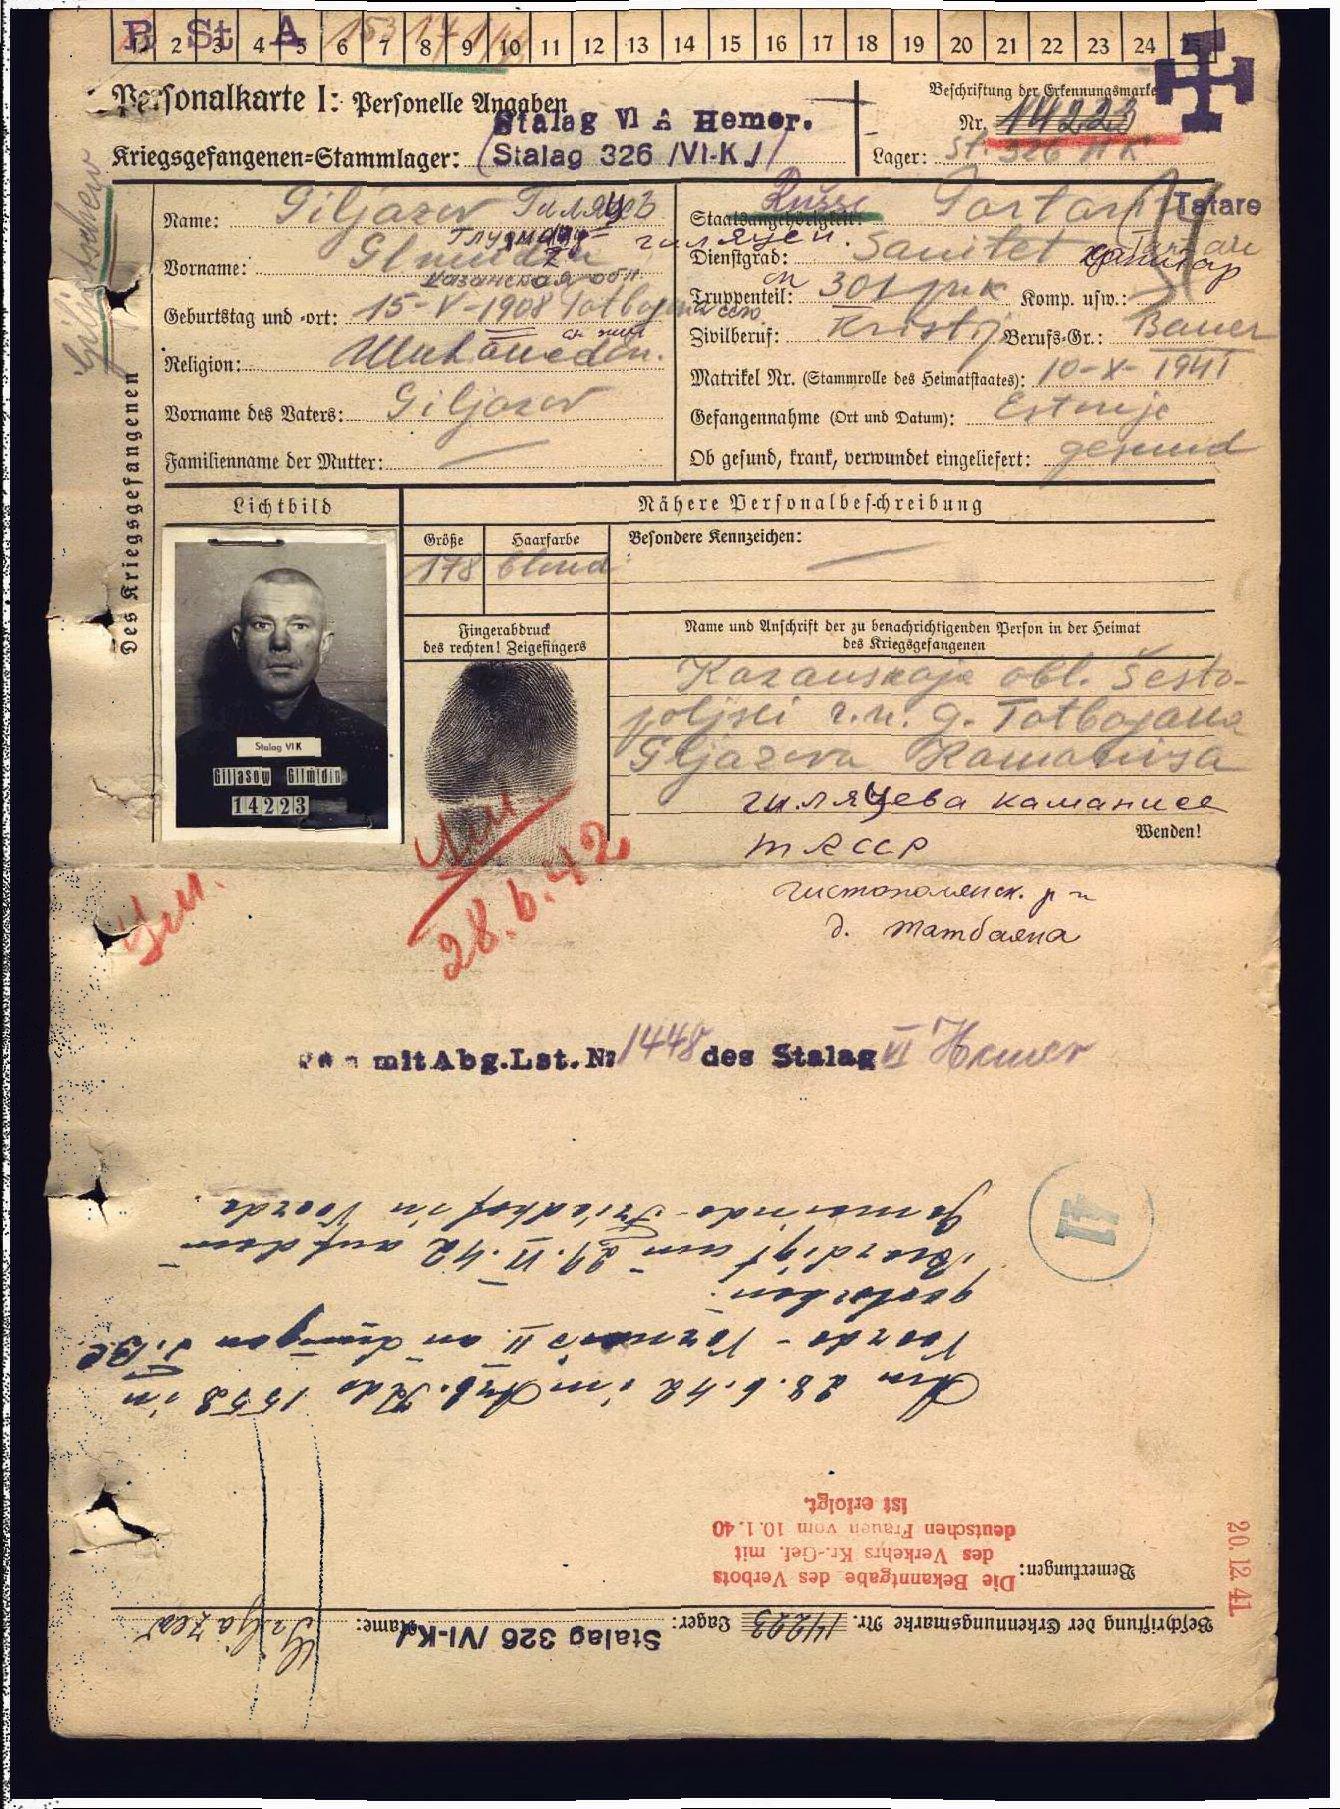 R St A
1 2 3 4 5 6 7 8 9 10 11 12 13 14 15 16 17 18 19 20 21 22 23 24 25
Personalkarte I: Personelle Angaben
Stalag VI A Hemer.
Kriegsgefangenen=Stammlager: (Stalag 326 /VI-K/)
Beschriftung der Erkennungsmarke
Nr. 14223
Lager: St. 326 VI K
Des Kriegsgefangenen
Name: Giljazov Гиляцев
Vorname: Glmudin
Казанская обл.
Geburtstag und -ort: 15-V-1908 Totbojana
Religion: Muhamedan.
Vorname des Vaters: Giljazov
Familienname der Mutter: —
Staatsangehörigkeit: Russe Tatare
Dienstgrad: Sanitet санитар
Truppenteil: 301 Komp. usw.:
Zivilberuf: Berufs-Gr.: Bauer
Matrikel Nr. (Stammrolle des Heimatstaates): 10-X-1941
Gefangennahme (Ort und Datum): Estonije
Ob gesund, krank, verwundet eingeliefert: gesund
Lichtbild
Nähere Personalbeschreibung
Größe Haarfarbe Besondere Kennzeichen: —
178 blond
Fingerabdruck
des rechten! Zeigefingers
Name und Anschrift der zu benachrichtigenden Person in der Heimat
des Kriegsgefangenen
Kazanskaja obl. Šesto-
poljski r.n. g. Totbojana
Giljazova Kamanisa
гиляцева камание
Wenden!
Т А С С Р
чистополянск. р-н
д. татбаяна
Stalag VI K
Giljasow Gilmidin
14223
28.6.42
mit Abg.Lst. Nr 1448 des Stalag VI Hemer
Beschriftung der Erkennungsmarke Nr. 14223 Lager: Stalag 326 /VI-K/ Name: Giljazew
Bemerkungen:
Die Bekanntgabe des Verbots
des Verkehrs Kr.-Gef. mit
deutschen Frauen vom 10.1.40
ist erfolgt.
20. 12. 41
Am 28.6.42 im Arb. Kdo 1552 in
Voerde - an
gestorben.
Beerdigt am 29.VI.42 auf dem
Gemeinde-Friedhof in Voerde.